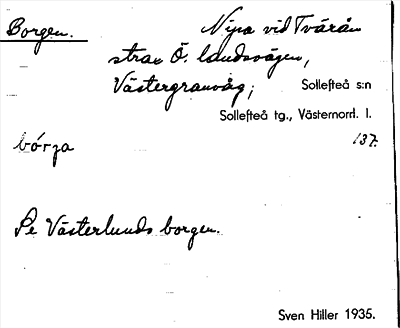 Borgen. Nipa vid Tvärån
strax Ö. landsvägen,
Västergranvåg; Sollefteå s:n
Sollefteå tg., Västernorrl. l.
bórza 137.
Se Västerlunds borgen.
Sven Hiller 1935.